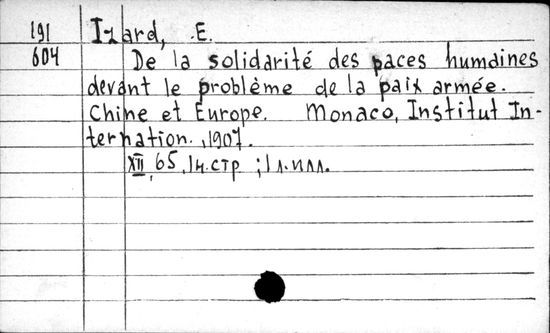 191 Izard, E.
604 De la solidarité des paces humaines
devant le problème de la paix armée.
Chine et Europe. Monaco, Institut In-
ternation., 1907.
XII, 65, 1 н. стр ; 1 л. илл.